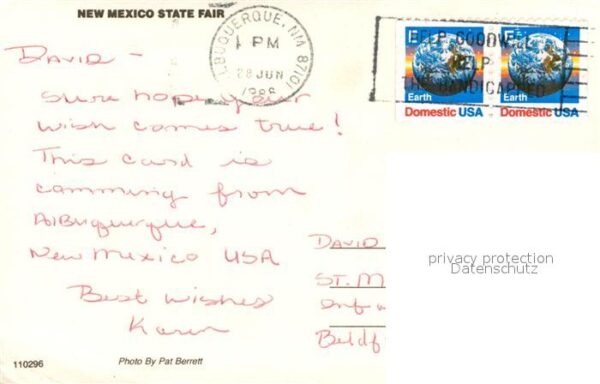 NEW MEXICO STATE FAIR
ALBUQUERQUE, NM 87101
PM
28 JUN
HELP GOODWILL
HELP
THE HANDICAPPED
E E
Earth Earth
Domestic USA Domestic USA
David –
Sure hope your
wish comes true!
This card is
comming from
Albuquerque,
New Mexico USA
Best wishes
Karen
DAVID
ST. M
privacy protection
Datenschutz
110296
Photo By Pat Berrett